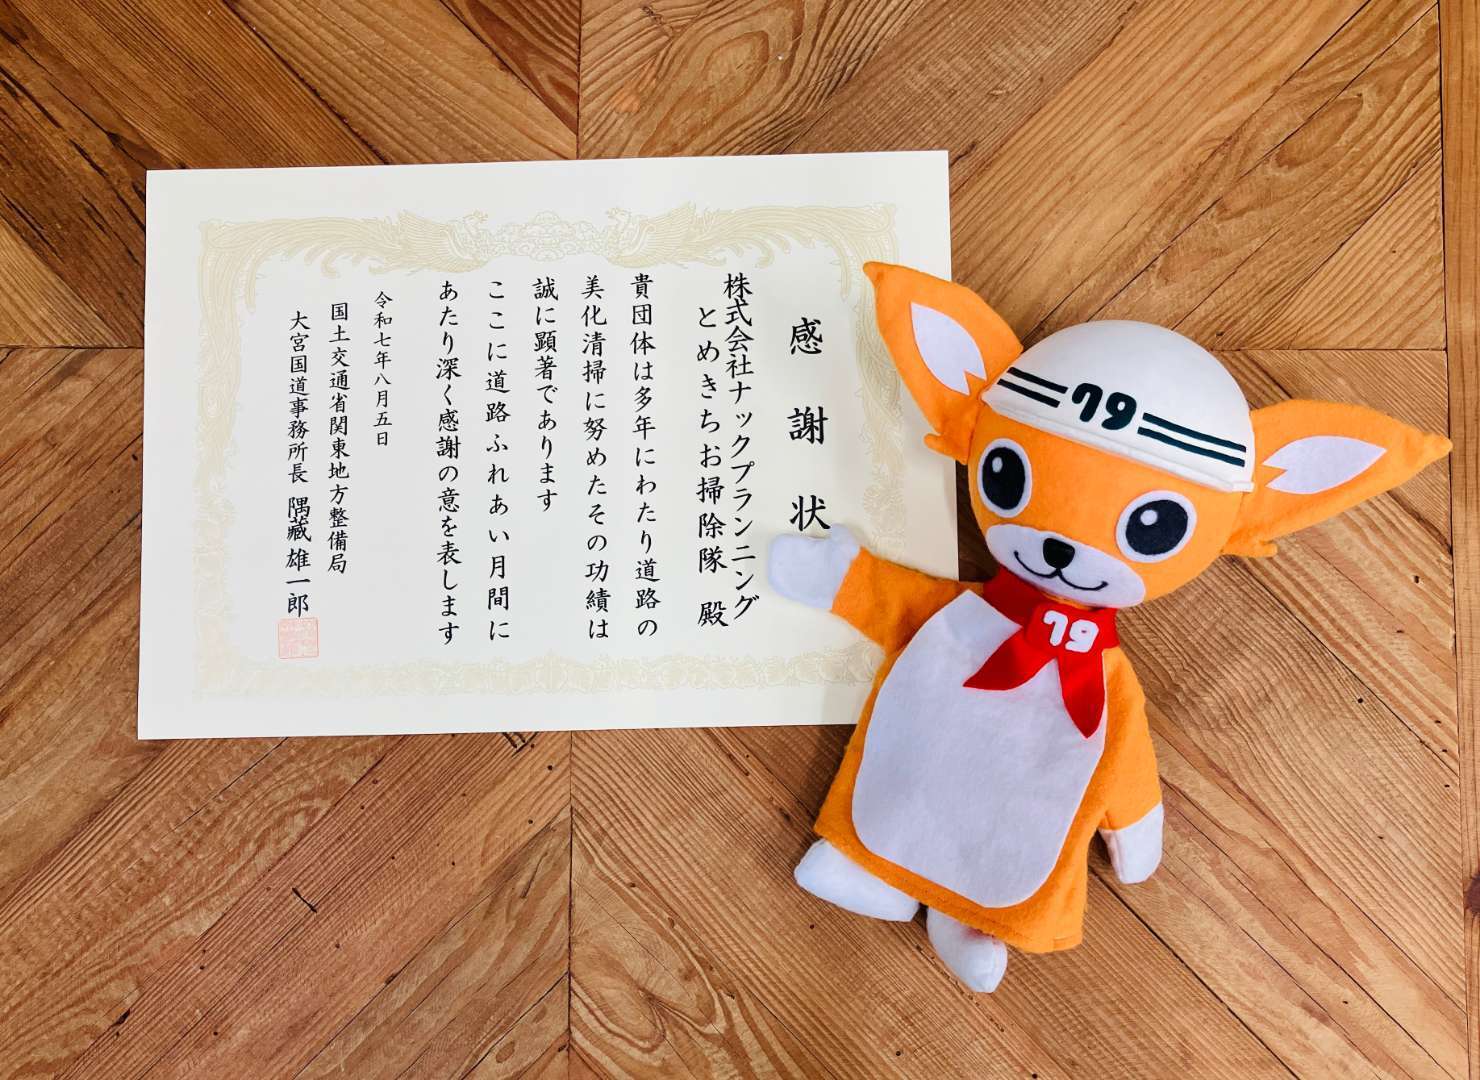 感謝状
株式会社ナックプランニング
とめきちお掃除隊 殿
貴団体は多年にわたり道路の
美化清掃に努めたその功績は
誠に顕著であります
ここに道路ふれあい月間に
あたり深く感謝の意を表します
令和七年八月五日
国土交通省関東地方整備局
大宮国道事務所長 隅藏雄一郎
79
79